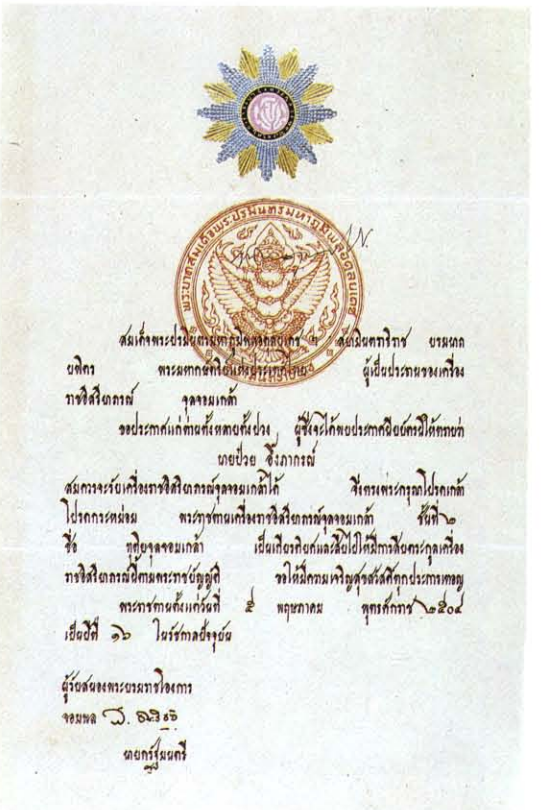 พระบาทสมเด็จพระปรมินทรมหาภูมิพลอดุลยเดช
สยามินทราธิราช บรมนาถ
บพิตร ผู้เป็นประธานของเครื่อง
ราชอิสริยาภรณ์ จุลจอมเกล้า
ขอประกาศแก่ท่านทั้งหลายทั้งปวง ผู้ซึ่งจะได้พบประกาศนียบัตรนี้ให้ทราบว่า
นายป๋วย อึ๊งภากรณ์
สมควรจะรับเครื่องราชอิสริยาภรณ์จุลจอมเกล้าได้ จึงทรงพระกรุณาโปรดเกล้า
โปรดกระหม่อม พระราชทานเครื่องราชอิสริยาภรณ์จุลจอมเกล้า ชั้นที่ ๒
ชื่อ ทุติยจุลจอมเกล้า เป็นเกียรติยศและสืบไปให้มีการสืบตระกูลเครื่อง
ราชอิสริยาภรณ์นี้ตามพระราชบัญญัติ ขอให้มีความเจริญสุขสวัสดิ์ทุกประการเทอญ
พระราชทานตั้งแต่วันที่ ๕ พฤษภาคม พุทธศักราช ๒๕๐๔
เป็นปีที่ ๑๖ ในรัชกาลปัจจุบัน
ผู้รับสนองพระบรมราชโองการ
จอมพล ส. ธนะรัชต์
นายกรัฐมนตรี